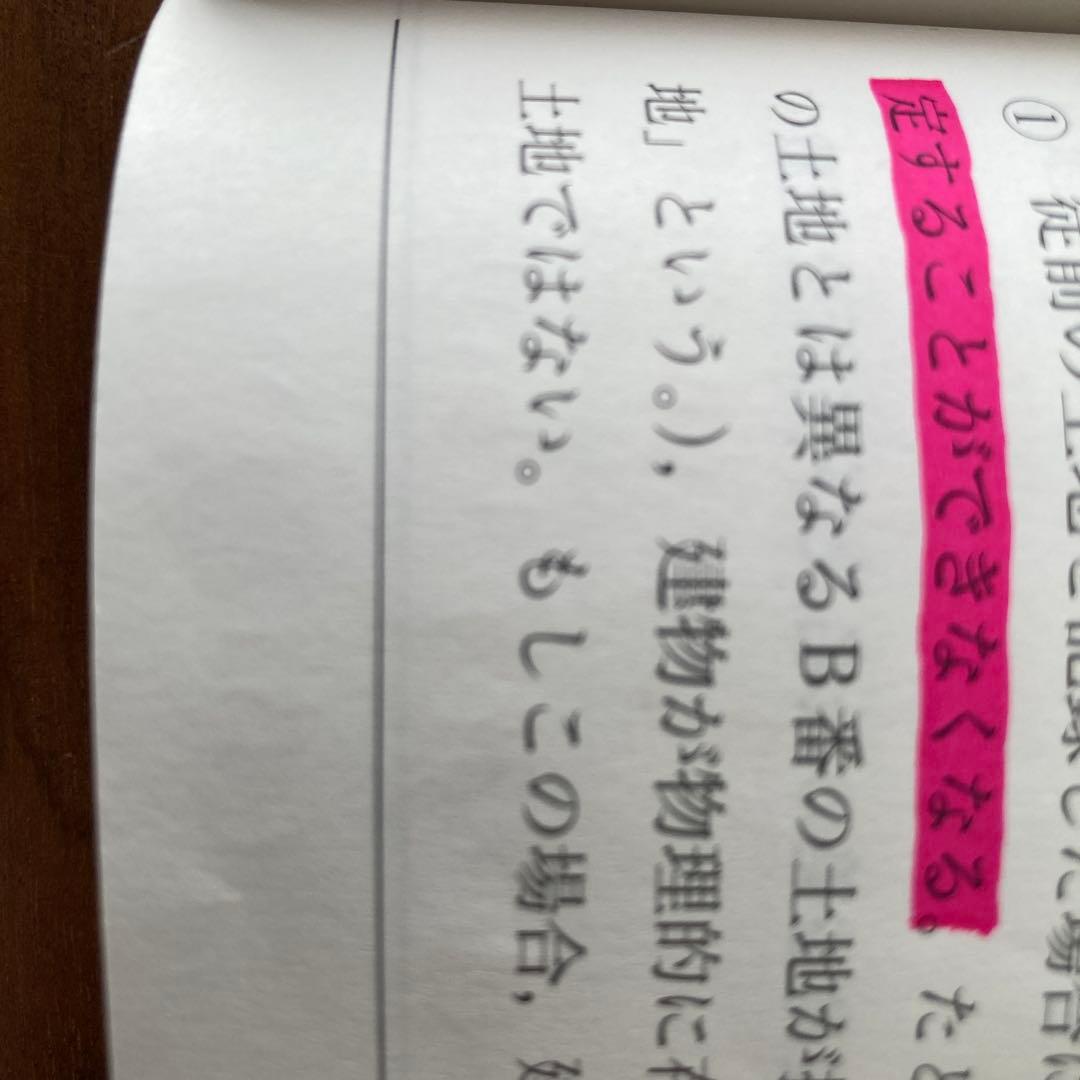 ① 従前の土地を記録した場合に
定することができなくなる。たと
の土地とは異なるB番の土地が
地」という。），建物が物理的に
土地ではない。もしこの場合，